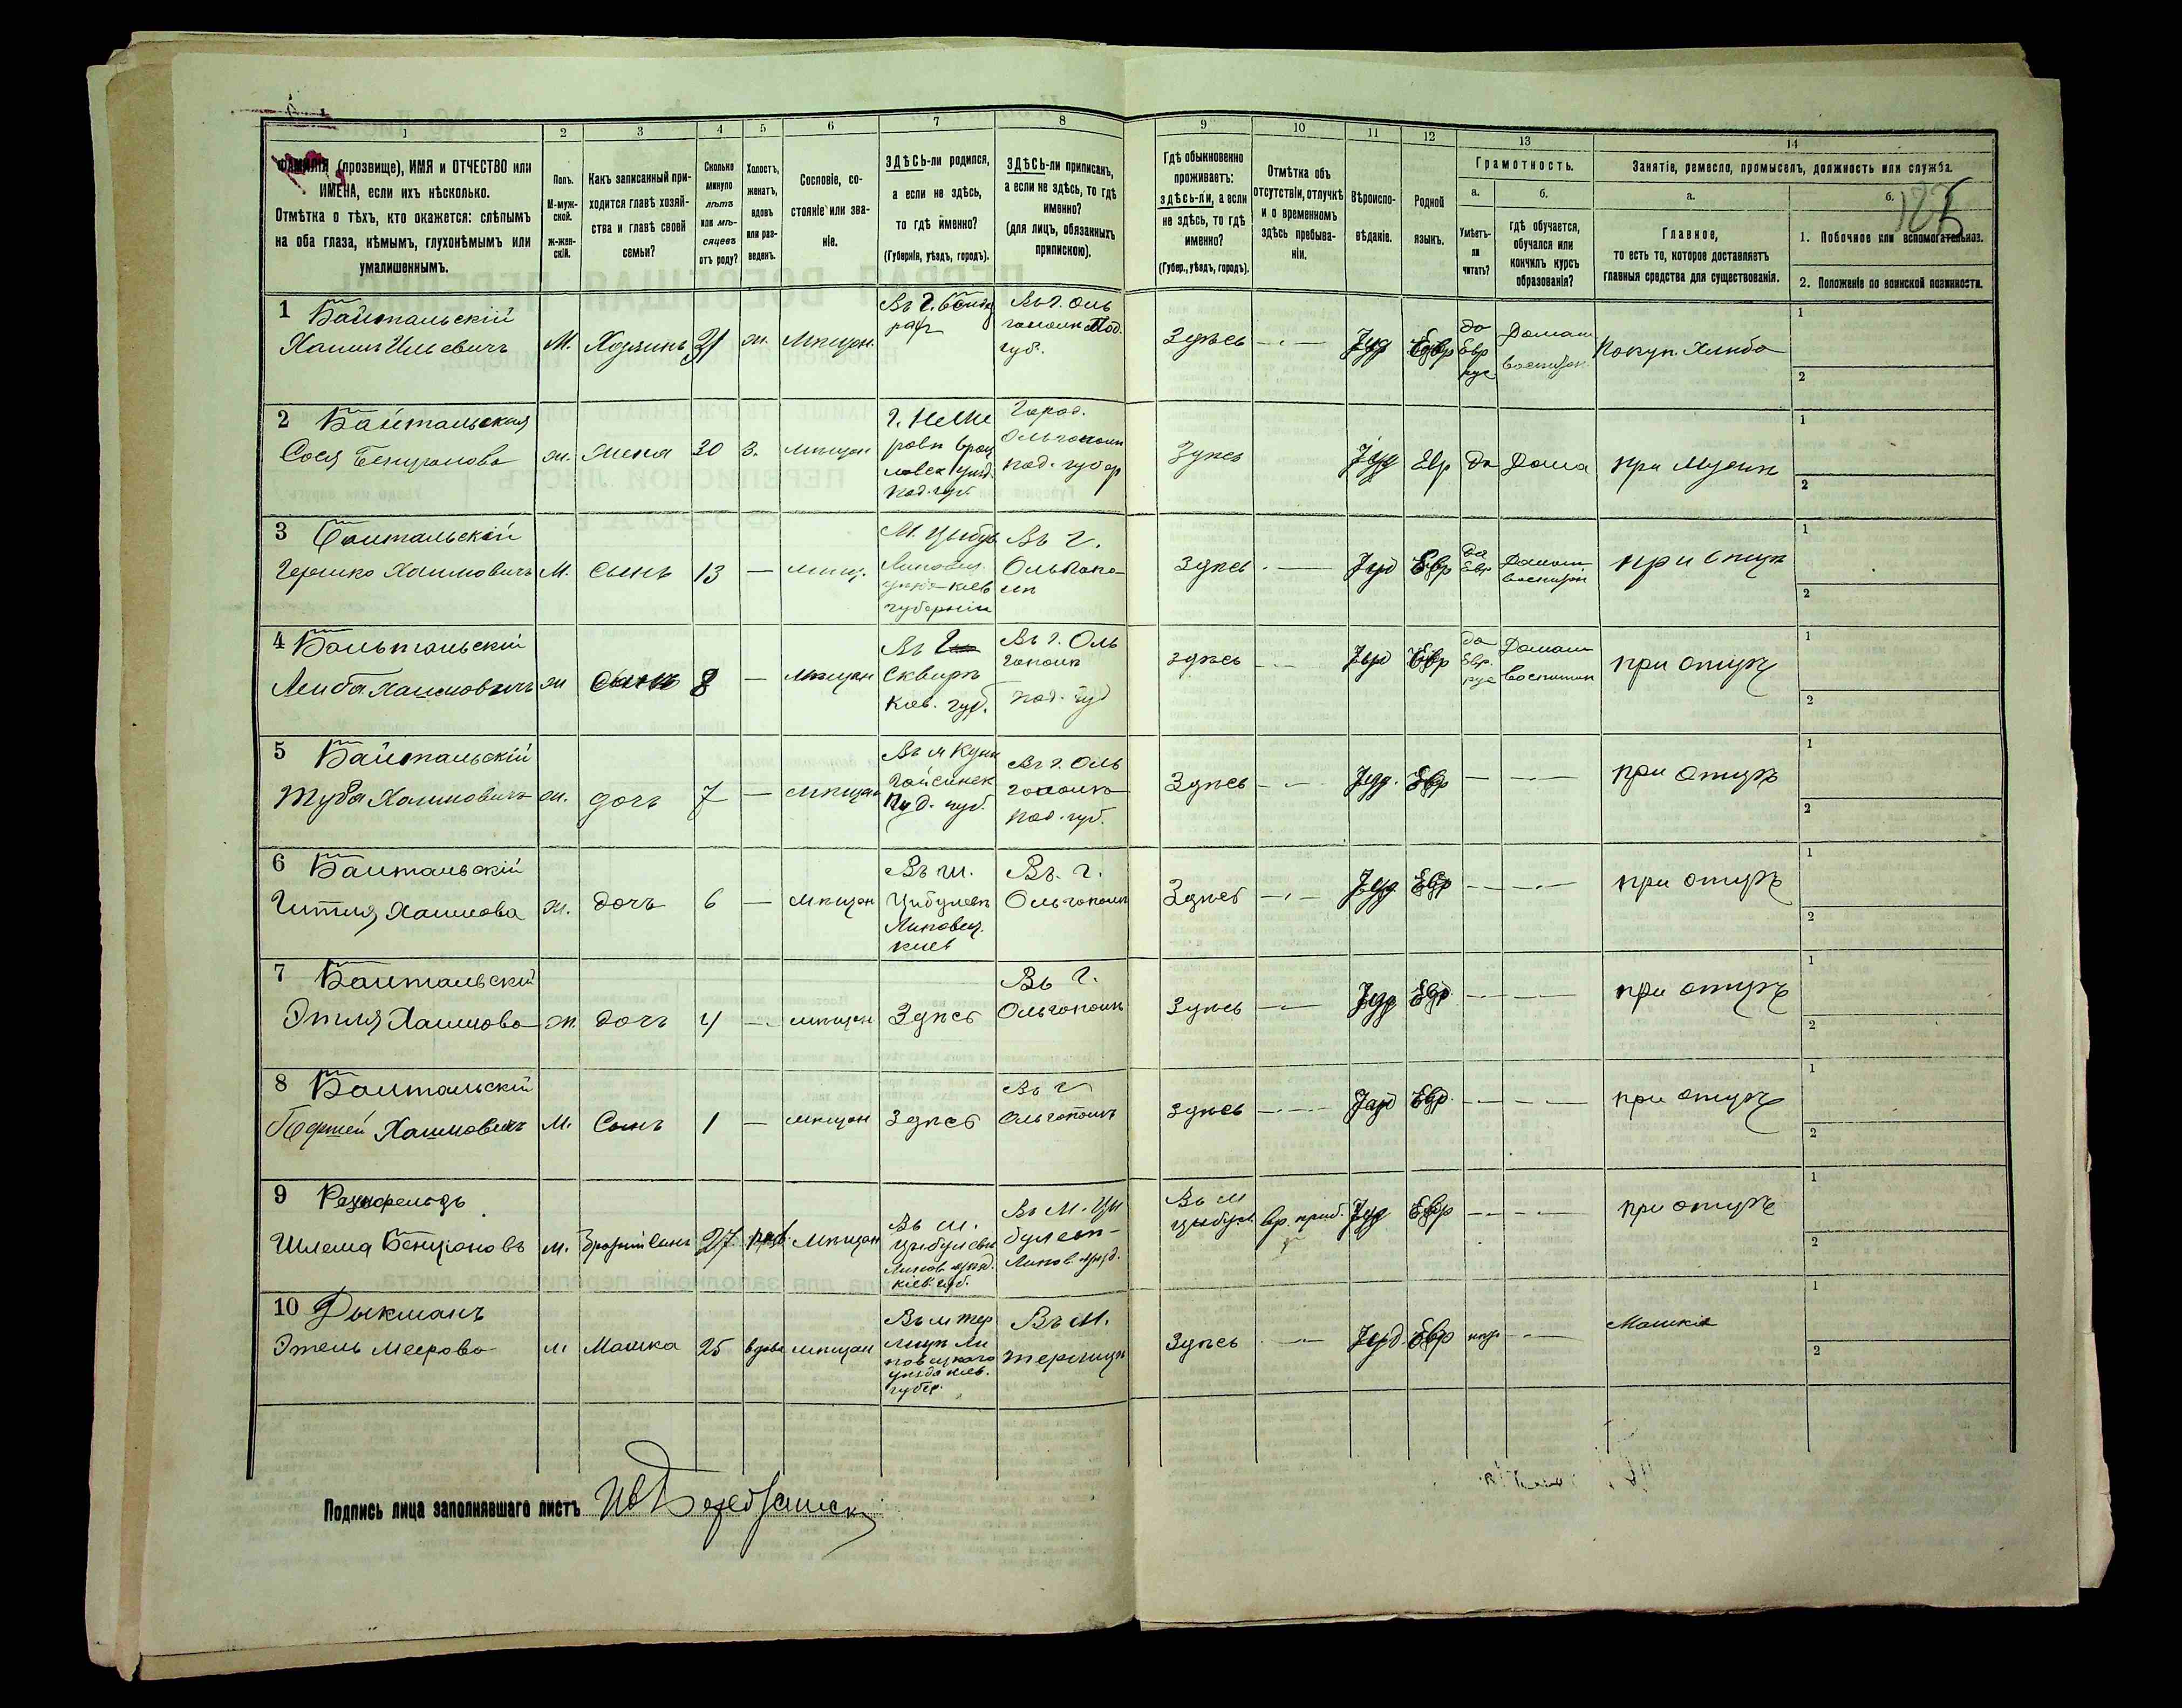 1 2 3 4 5 6 7 8 9 10 11 12 13 14
ФАМИЛІЯ (прозвище), ИМЯ и ОТЧЕСТВО или
ИМЕНА, если ихъ нѣсколько.
Отмѣтка о тѣхъ, кто окажется: слѣпымъ
на оба глаза, нѣмымъ, глухонѣмымъ или
умалишеннымъ.
Полъ.
М-муж-
ской.
ж-жен-
скій.
Какъ записанный при-
ходится главѣ хозяй-
ства и главѣ своей
семьи?
Сколько
минуло
лѣтъ
или мѣ-
сяцевъ
отъ роду?
Холостъ,
женатъ,
вдовъ
или раз-
веденъ.
Сословіе, со-
стояніе или зва-
ніе.
ЗДѢСЬ-ли родился,
а если не здѣсь,
то гдѣ именно?
(Губернія, уѣздъ, городъ).
ЗДѢСЬ-ли приписанъ,
а если не здѣсь, то гдѣ
именно?
(для лицъ, обязанныхъ
припискою).
Гдѣ обыкновенно
проживаетъ:
здѣсь-ли, а если
не здѣсь, то гдѣ
именно?
(Губер., уѣздъ, городъ).
Отмѣтка объ
отсутствіи, отлучкѣ
и о временномъ
здѣсь пребыва-
ніи.
Вѣроиспо-
вѣданіе.
Родной
языкъ.
Грамотность.
а.
Умѣетъ-
ли
читать?
б.
гдѣ обучается,
обучался или
кончилъ курсъ
образованія?
Занятіе, ремесло, промыселъ, должность или служба.
а.
Главное,
то есть то, которое доставляетъ
главныя средства для существованія.
б.
1. Побочное или вспомогательное.
2. Положеніе по воинской повинности.
1 Байтальскій
Хаимъ Ильевичъ М. Хозяинъ 31 ж. Мѣщан.
Въ г. Оль
гополи Под.
губ.
Здѣсь Іуд Евр
да
Евр
рус
Домаш
воспитан
Покуп. Хлѣба
1
2
2 Байтальская
Сося Бенціонова ж. жена 30 З. мѣщан
г. Неми
ровъ
Под. губ
Город.
Ольгополи
под. губер
Здѣсь Іуд Евр да Дома при Мужи
1
2
3 Байтальскій
Гершко Хаимовичъ М. Сынъ 13 — мѣщ.
М. Цыбул
Липовец.
губерніи
Въ г.
Ольгопо-
ли
Здѣсь — Іуд Евр
да
Евр
Домаш
воспитан
при отцѣ
1
2
4 Байтальскій
Лейба Хаимовичъ м сынъ 8 — мѣщан
Въ г.
Сквирѣ
Кіев. губ.
Въ г. Оль
гополи
под. губ
здѣсь — Іуд Евр
да
Евр.
рус
Домаш
воспитан
при отцѣ
1
2
5 Байтальскій
Туба Хаимовичъ ж. дочь 7 — мѣщан
Въ м Куни
Гайсинск
Под. губ.
Въ г. Оль
гополи
под. губ.
Здѣсь — Іуд. Евр — — при отцѣ
1
2
6 Байтальскій
Гитля Хаимова ж. дочь 6 — мѣщан
Въ м.
Цибулевѣ
Липовец.
кіев
Въ. г.
Ольгополи
Здѣсь — Іуд Евр — — при отцѣ
1
2
7 Байтальскій
Этля Хаимова ж дочь 4 — мѣщан Здѣсь
Въ г.
Ольгополи
Здѣсь — Іуд Евр — — при отцѣ
1
2
8 Байтальскій
Хаимовичъ М. Сынъ 1 — мѣщан Здѣсь
Въ г
Ольгополи
здѣсь — Іуд Евр — — при отцѣ
1
2
9
Шлема Бенціоновъ м. 27 мѣщан
Въ м.
Цыбулевѣ
Липов. уѣзд.
кіев. губ.
Въ м. Цы
булевѣ
Липов. уѣзд.
Въ м
Цыбул. вр. преб. Іуд Евр — — при отцѣ
1
2
10 Дыкманъ
Этель Меерова Мамка 25 вдова мѣщан
Ли
повецкаго
уѣзда кіев.
губер.
Въ м.
Здѣсь — Іуд. Евр — Мамка
1
2
Подпись лица заполнявшаго листъ